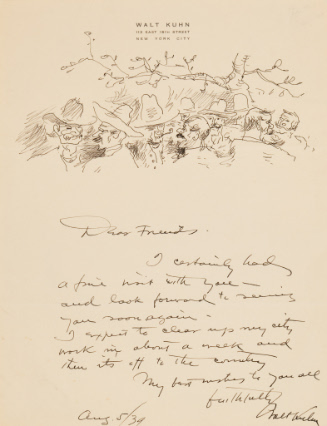 WALT KUHN
112 EAST 18TH STREET
NEW YORK CITY
Dear Friends.
I certainly had
a fine visit with you —
and look forward to seeing
you soon again —
I expect to clear up my city
work in about a week and
then its off to the country
My best wishes to you all
faithfully
Walt Kuhn
Aug. 5/39